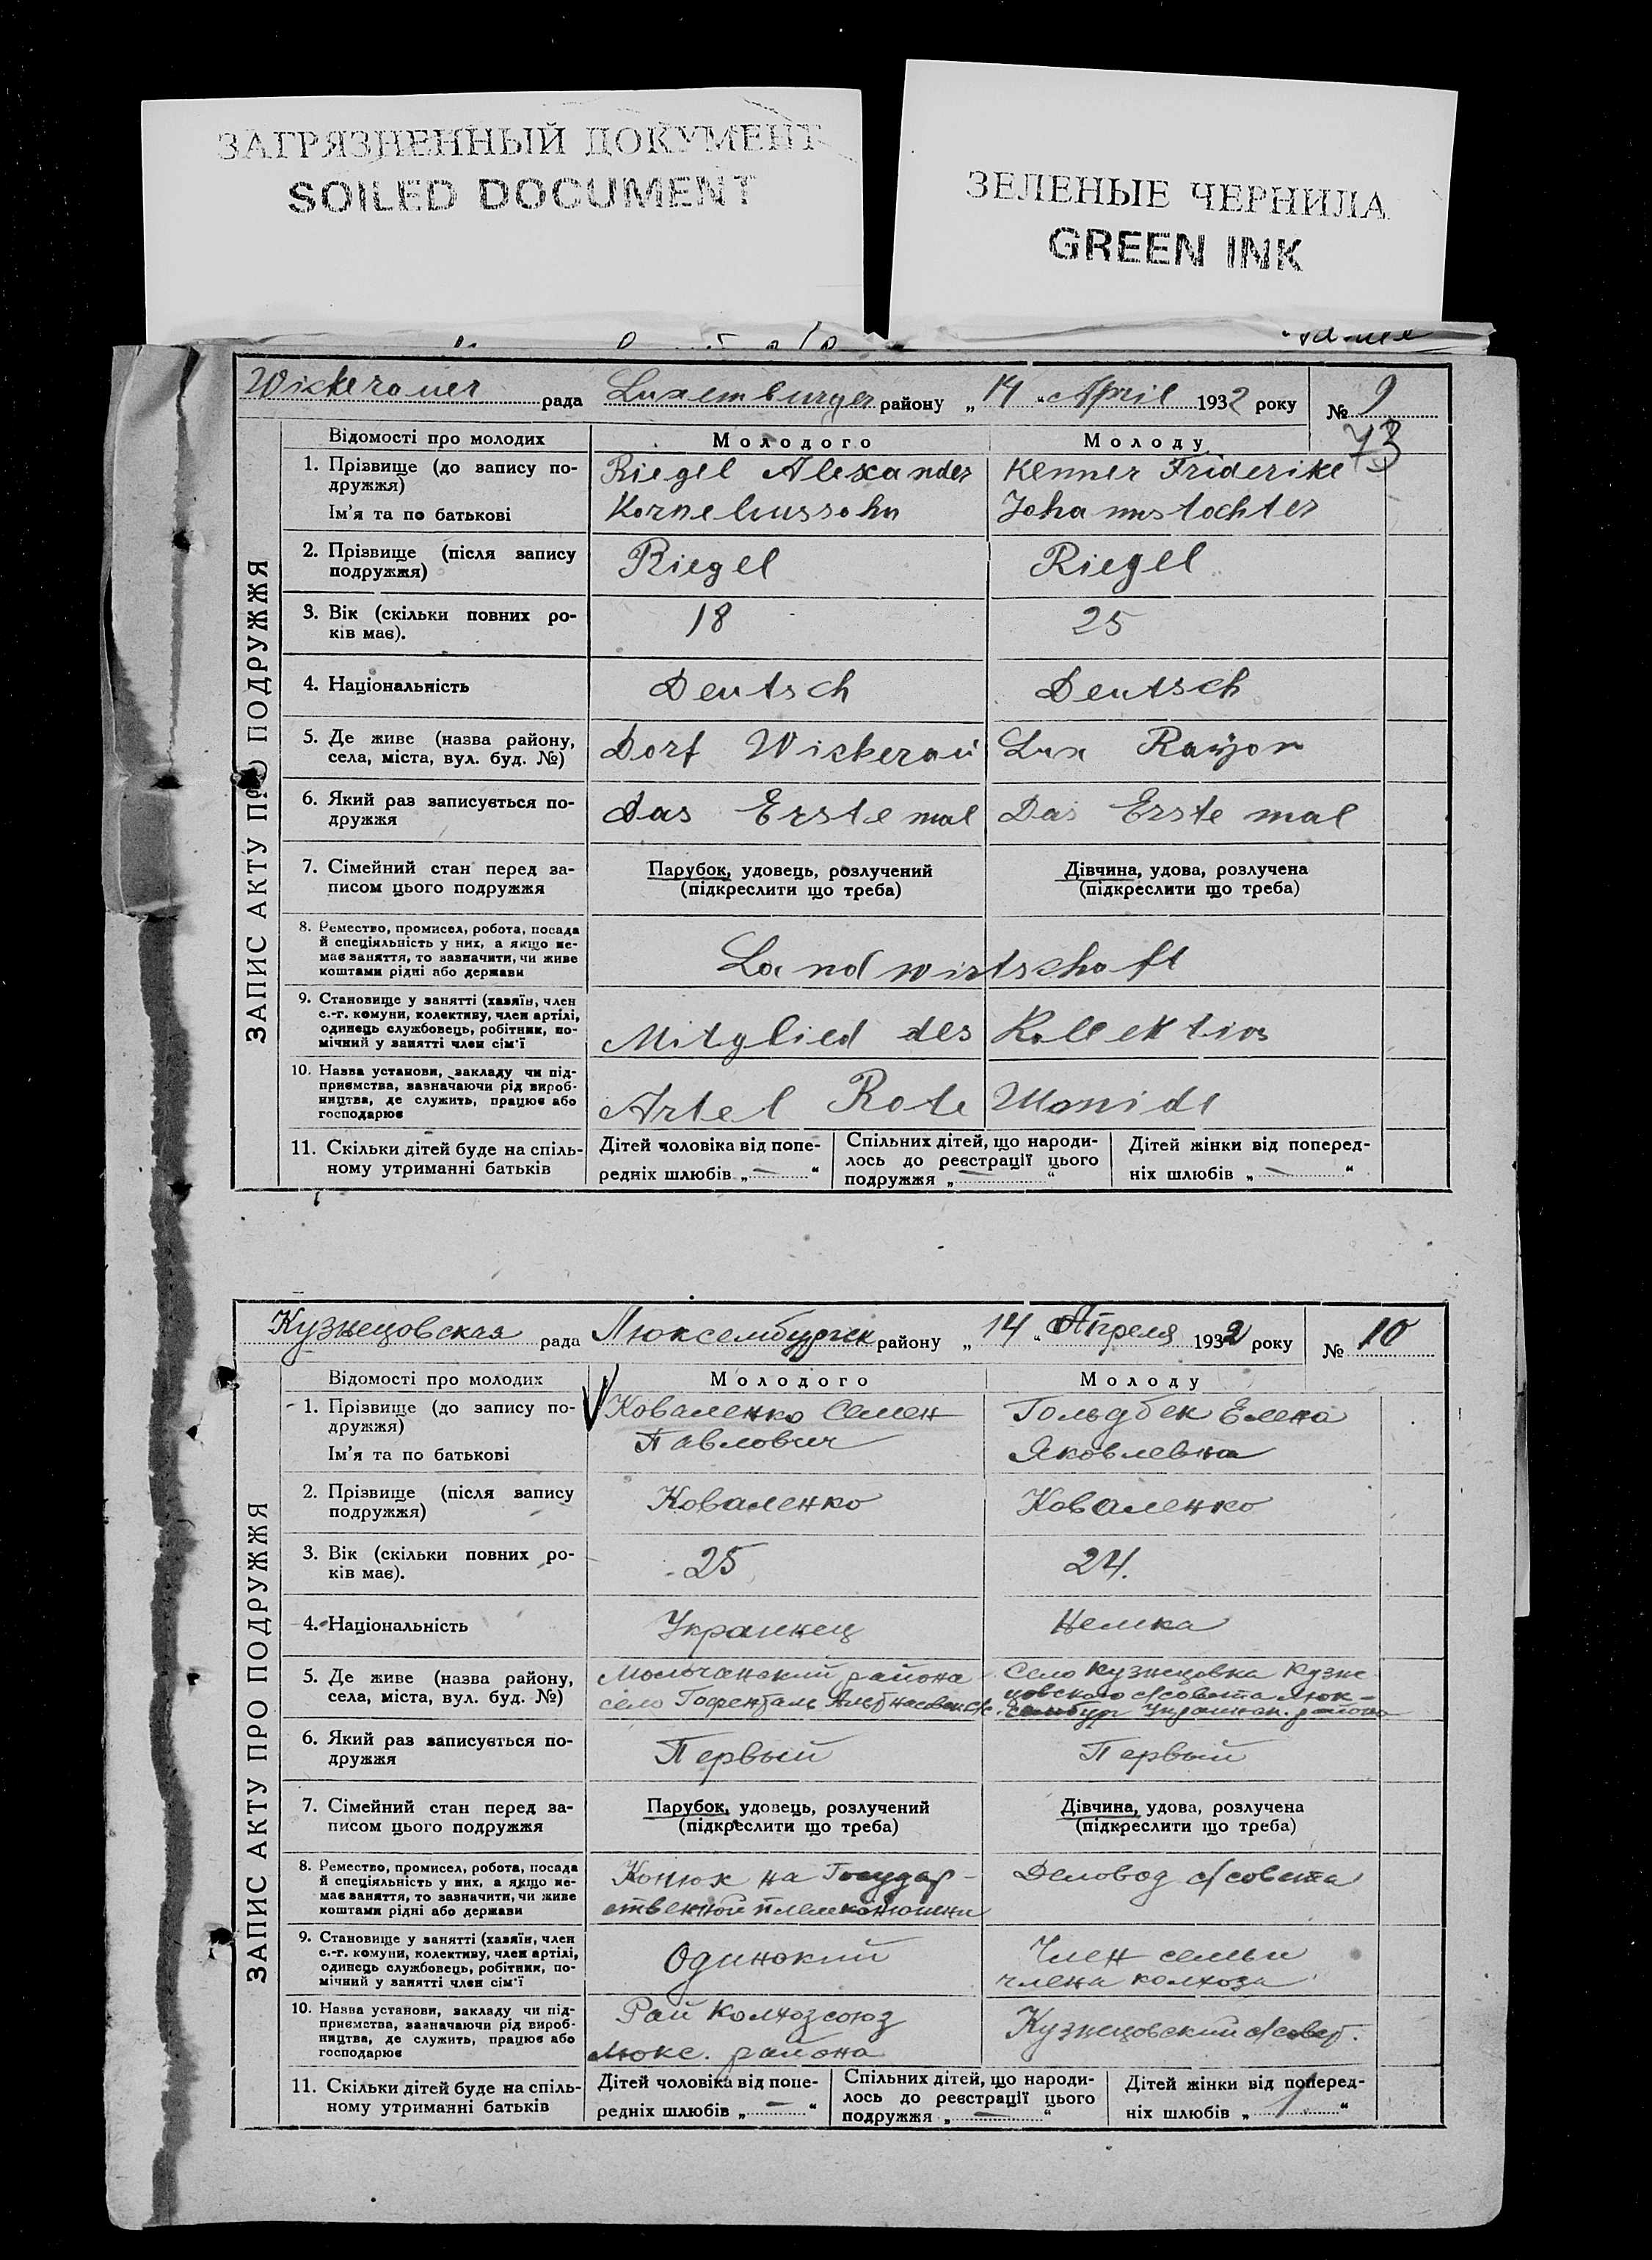 ЗАГРЯЗНЕННЫЙ ДОКУМЕНТ
SOILED DOCUMENT
ЗЕЛЕНЫЕ ЧЕРНИЛА
GREEN INK
Wickerauer рада Luxemburger району „14“ April 1932 року № 9
73
ЗАПИС АКТУ ПРО ПОДРУЖЖЯ
Відомості про молодих Молодого Молоду
1. Прізвище (до запису по- Riegel Alexander Kenner Friderike
дружжя)
Ім'я та по батькові Korneliussohn Johannstochter
2. Прізвище (після запису Riegel Riegel
подружжя)
3. Вік (скільки повних ро- 18 25
ків має).
4. Національність Deutsch Deutsch
5. Де живе (назва району, Dorf Wickerau Lux Rayon
села, міста, вул. буд. №)
6. Який раз записується по- Das Erste mal Das Erste mal
дружжя
7. Сімейний стан перед за- Парубок, удовець, розлучений Дівчина, удова, розлучена
писом цього подружжя (підкреслити що треба) (підкреслити що треба)
8. Ремество, промисел, робота, посада
й спеціяльність у них, а якщо не-
має заняття, то зазначити, чи живе Landwirtschaft
коштами рідні або держави
9. Становище у занятті (хазяїн, член
с.-г. комуни, колективу, член артілі,
одинець службовець, робітник, по- Mitglied des Kollektivs
мічний у занятті член сім'ї
10. Назва установи, закладу чи під-
приємства, зазначаючи рід вироб-
ництва, де служить, працює або Artel Rote
господарює
11. Скільки дітей буде на спіль- Дітей чоловіка від попе- Спільних дітей, що народи- Дітей жінки від поперед-
ному утриманні батьків редніх шлюбів „—“ лось до реєстрації цього ніх шлюбів „—“
подружжя „—“
Кузнецовская рада Люксембургск району „14“ Апреля 1932 року № 10
ЗАПИС АКТУ ПРО ПОДРУЖЖЯ
Відомості про молодих Молодого Молоду
1. Прізвище (до запису по- Коваленко Семен Гольдбек Елена
дружжя) Павлович Яковлевна
Ім'я та по батькові
2. Прізвище (після запису Коваленко Коваленко
подружжя)
3. Вік (скільки повних ро- 25 24.
ків має).
4. Національність Украинец Немка
5. Де живе (назва району, Молочанский района Село Кузнецовка Кузне
села, міста, вул. буд. №) село Гофенталь цовского с/совета Люк-
сембург Украинск. района
6. Який раз записується по- Первый Первый
дружжя
7. Сімейний стан перед за- Парубок, удовець, розлучений Дівчина, удова, розлучена
писом цього подружжя (підкреслити що треба) (підкреслити що треба)
8. Ремество, промисел, робота, посада Конюх на Государ- Деловод с/совета
й спеціяльність у них, а якщо не-
має заняття, то зазначити, чи живе ственной племконюшни
коштами рідні або держави
9. Становище у занятті (хазяїн, член Одинокий Член семьи
с.-г. комуни, колективу, член артілі,
одинець службовець, робітник, по- члена колхоза
мічний у занятті член сім'ї
10. Назва установи, закладу чи під- Рай Колхозсоюз Кузнецовский с/совет.
приємства, зазначаючи рід вироб-
ництва, де служить, працює або Люкс. района
господарює
11. Скільки дітей буде на спіль- Дітей чоловіка від попе- Спільних дітей, що народи- Дітей жінки від поперед-
ному утриманні батьків редніх шлюбів „—“ лось до реєстрації цього ніх шлюбів „1“
подружжя „—“